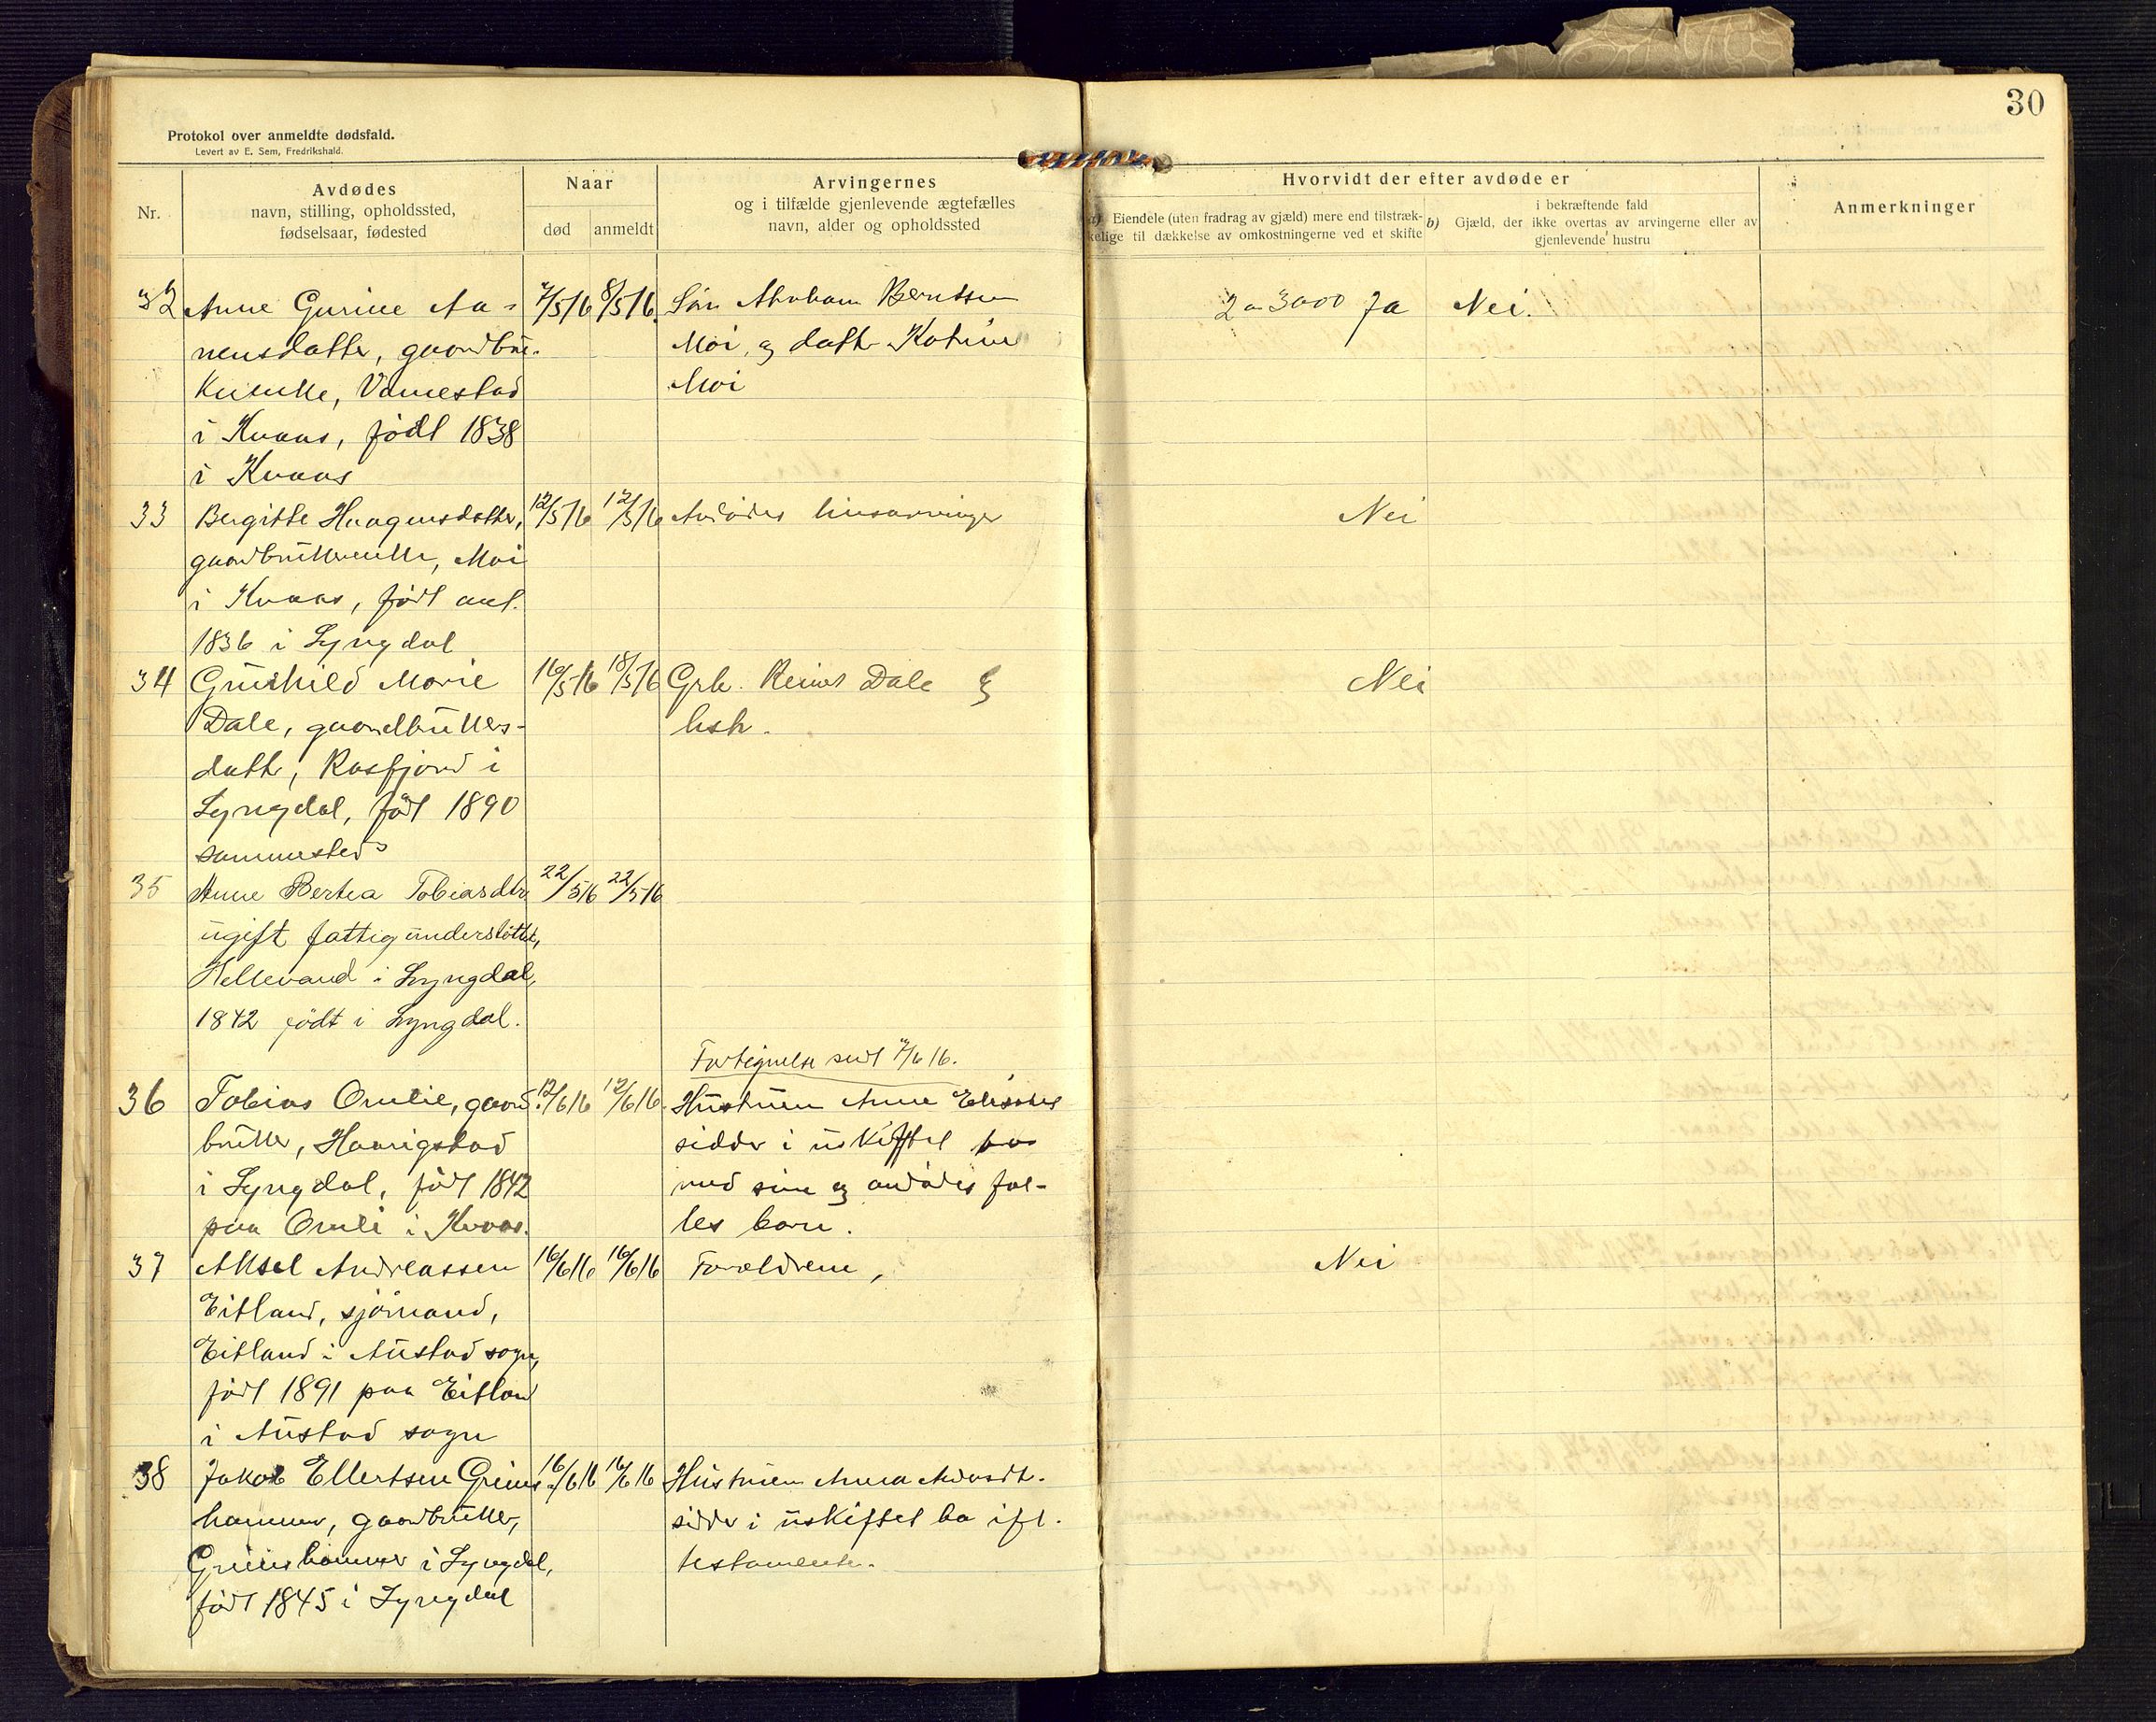 30
Protokol over anmeldte dødsfald.
Levert av E. Sem, Fredrikshald.
Nr.
Avdødes
navn, stilling, opholdssted,
fødselsaar, fødested
Naar
død
anmeldt
Arvingernes
og i tilfælde gjenlevende ægtefælles
navn, alder og opholdssted
Hvorvidt der efter avdøde er
a) Eiendele (uten fradrag av gjæld) mere end tilstræk-
kelige til dækkelse av omkostningerne ved et skifte
b) Gjæld, der ikke overtas av arvingerne eller av
i bekræftende fald
gjenlevende hustru
Anmerkninger
32 Anne Gurine Aa- 7/5 16 8/5 16. Søn Abraham Berntsen 2 a 3000 Ja Nei.
nensdatter, gaardbru-
Moi, og datt. Katrine
kerenke, Vamestad
Moi
i Kvaas, født 1838
i Kvaas
33 Bergitte Haagensdatter, 12/5 16 12/5 16 Avdødes livsarvinger Nei
gaardbrukerenke, Moi
i Kvaas, født ant.
1836 i Lyngdal
34 Gunhild Marie 16/5 16 18/5 16 Grb. Reiner Dale og Nei
Dale, gaardbrukers-
hst.
datter, Rosfjord i
Lyngdal, født 1890
sammesteds
35 Anne Bertea Tobiasdtr. 22/5 16 22/5 16
ugift fattigunderstøttet,
Hellevand i Lyngdal,
1842 født i Lyngdal.
Fortegnelse sendt 7/6 16.
36 Tobias Omlie, gaard- 12/6 16 12/6 16. Hustruen Anne
bruker, Haarigstad
sidder i uskiftet bo
i Lyngdal, født 1842
med sine og avdødes fæl-
paa Omli i Kvaas.
les barn.
37 Aksel Andreassen 16/6 16 16/6 16 Forældrene, Nei
Eitland, sjømand,
Eitland i Austad sogn,
født 1891 paa Eitland
i Austad sogn
38 Jakob Ellertsen Grims- 16/6 16 16/6 16 Hustruen Anna
hammer, gaardbruker,
sidder i uskiftet bo ifl.
Grimshammer i Lyngdal,
testamente.
født 1845 i Lyngdal